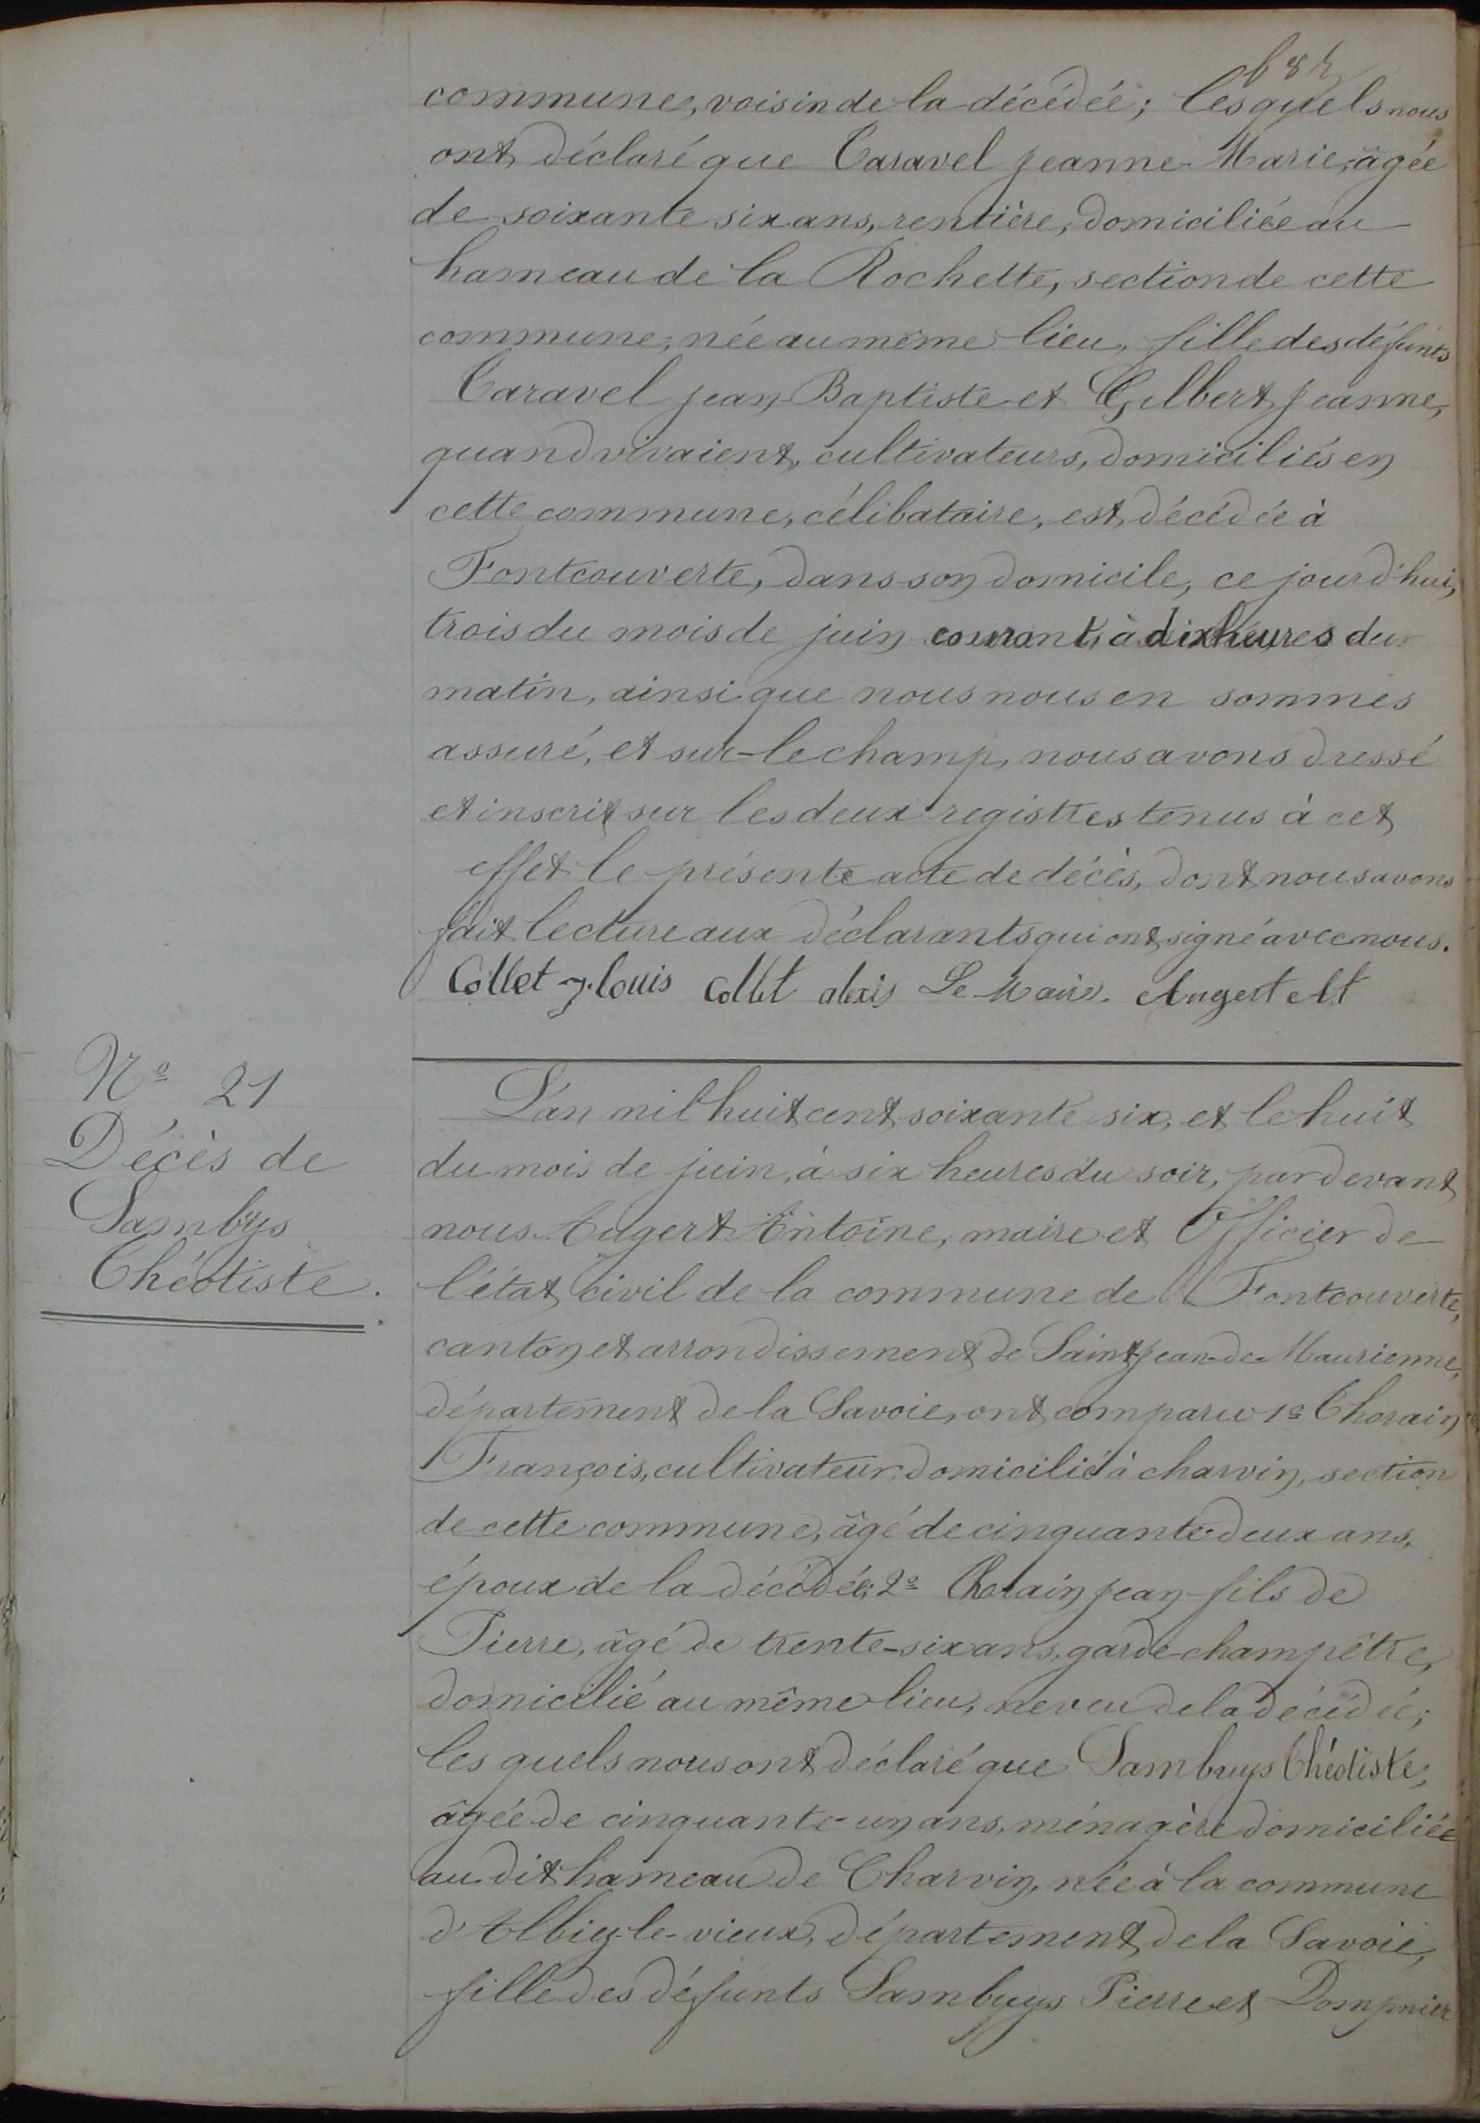 commune, voisin de la décédée; lesquels nous
ont déclaré que Caravel Jeanne-Marie, âgée
de soixante six ans, rentière, domiciliée au
hameau de la Rochette, section de cette
commune, née au même lieu, fille des défunts
Caravel Jean-Baptiste et Gilbert Jeanne,
quand vivaient, cultivateurs, domiciliés en
cette commune, célibataire, est décédée à
Fontcouverte, dans son domicile, ce jourd'hui,
trois du mois de juin courant, à dix heures du
matin, ainsi que nous nous en sommes
assuré, et sur-le champ, nous avons dressé
et inscrit sur les deux registres tenus à cet
effet le présente acte de décès, dont nous avons
fait lecture aux déclarants qui ont signé avec nous.
Collet J. Louis Collet alexis Le Maire. Augert At
Nº 21
Décès de
Sambuys
Théotiste.
L'an mil huit cent soixante six, et le huit
du mois de juin, à six heures du soir, pardevant
nous Augert Antoine, maire et Officier de
l'état civil de la commune de Fontcouverte,
canton et arrondissement de Saint-Jean-de-Maurienne,
département de la Savoie, ont comparu 1º Thorain
François, cultivateur, domicilié à charvin, section
de cette commune, âgé de cinquante deux ans,
époux de la décédée; 2º Thorain Jean fils de
Pierre, âgé de trente-six ans, garde-champêtre,
domicilié au même lieu, neveu de la décédée;
les quels nous ont déclaré que Sambuys Théotiste,
âgée de cinquante-un ans, ménagère domiciliée
au dit hameau de Charvin, née à la commune
d'Albiez-le-vieux, département de la Savoie,
fille des défunts Sambuys Pierre et Dompnier